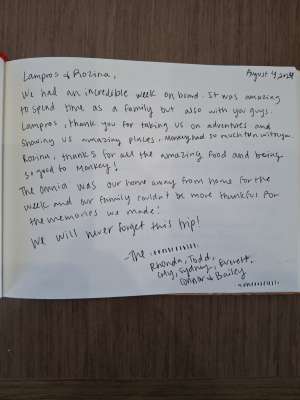 August 4, 2024
Lampros & Rozina,
We had an incredible week on board. It was amazing
to spend time as a family but also with you guys.
Lampros, thank you for taking us on adventures and
showing us amazing places, Monkey had so much fun with you.
Rozina, thanks for all the amazing food and being
so good to Monkey!
The Omnia was our home away from home for the
week and our family couldn't be more thankful for
the memories we made!
We will never forget this trip!
- The
Rhonda, Todd,
Sydney, Everett,
Connor & Bailey